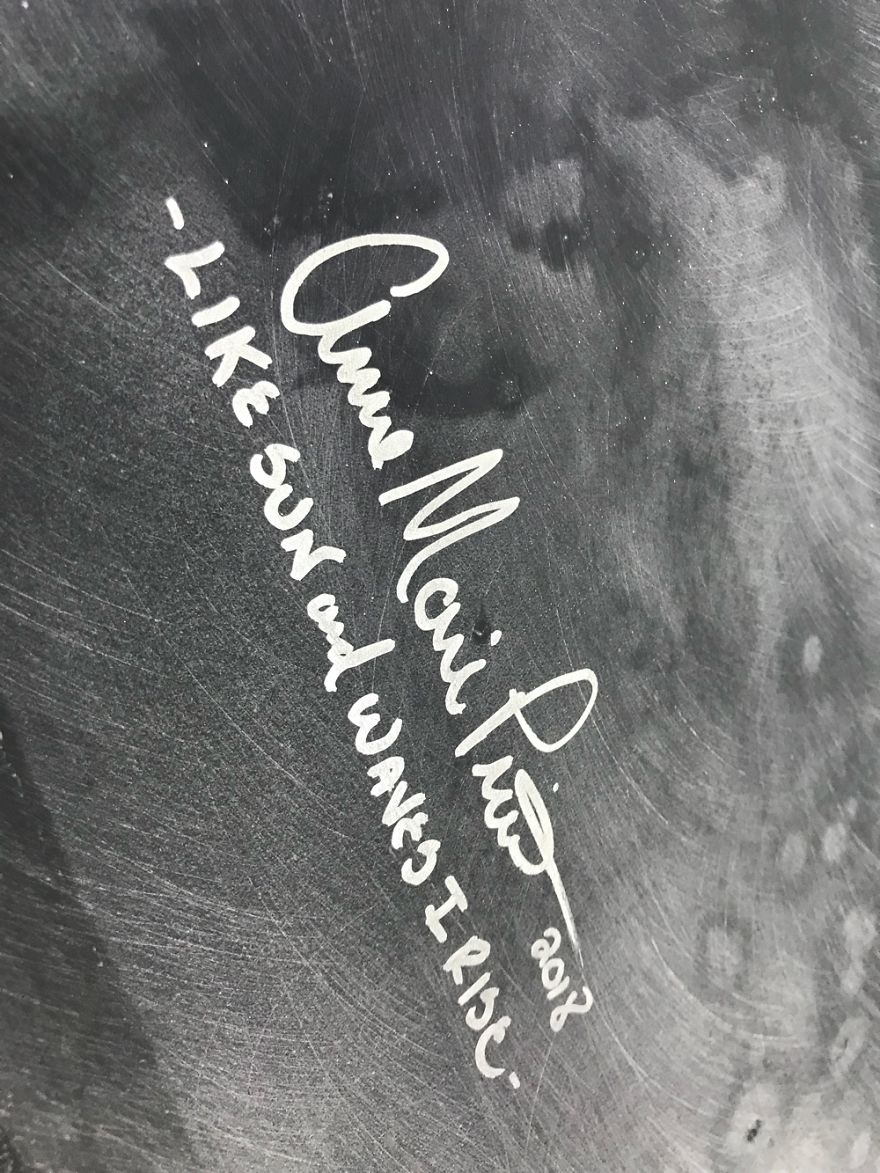 Anne Marie 2018
- LIKE SUN and WAVES I RISE.